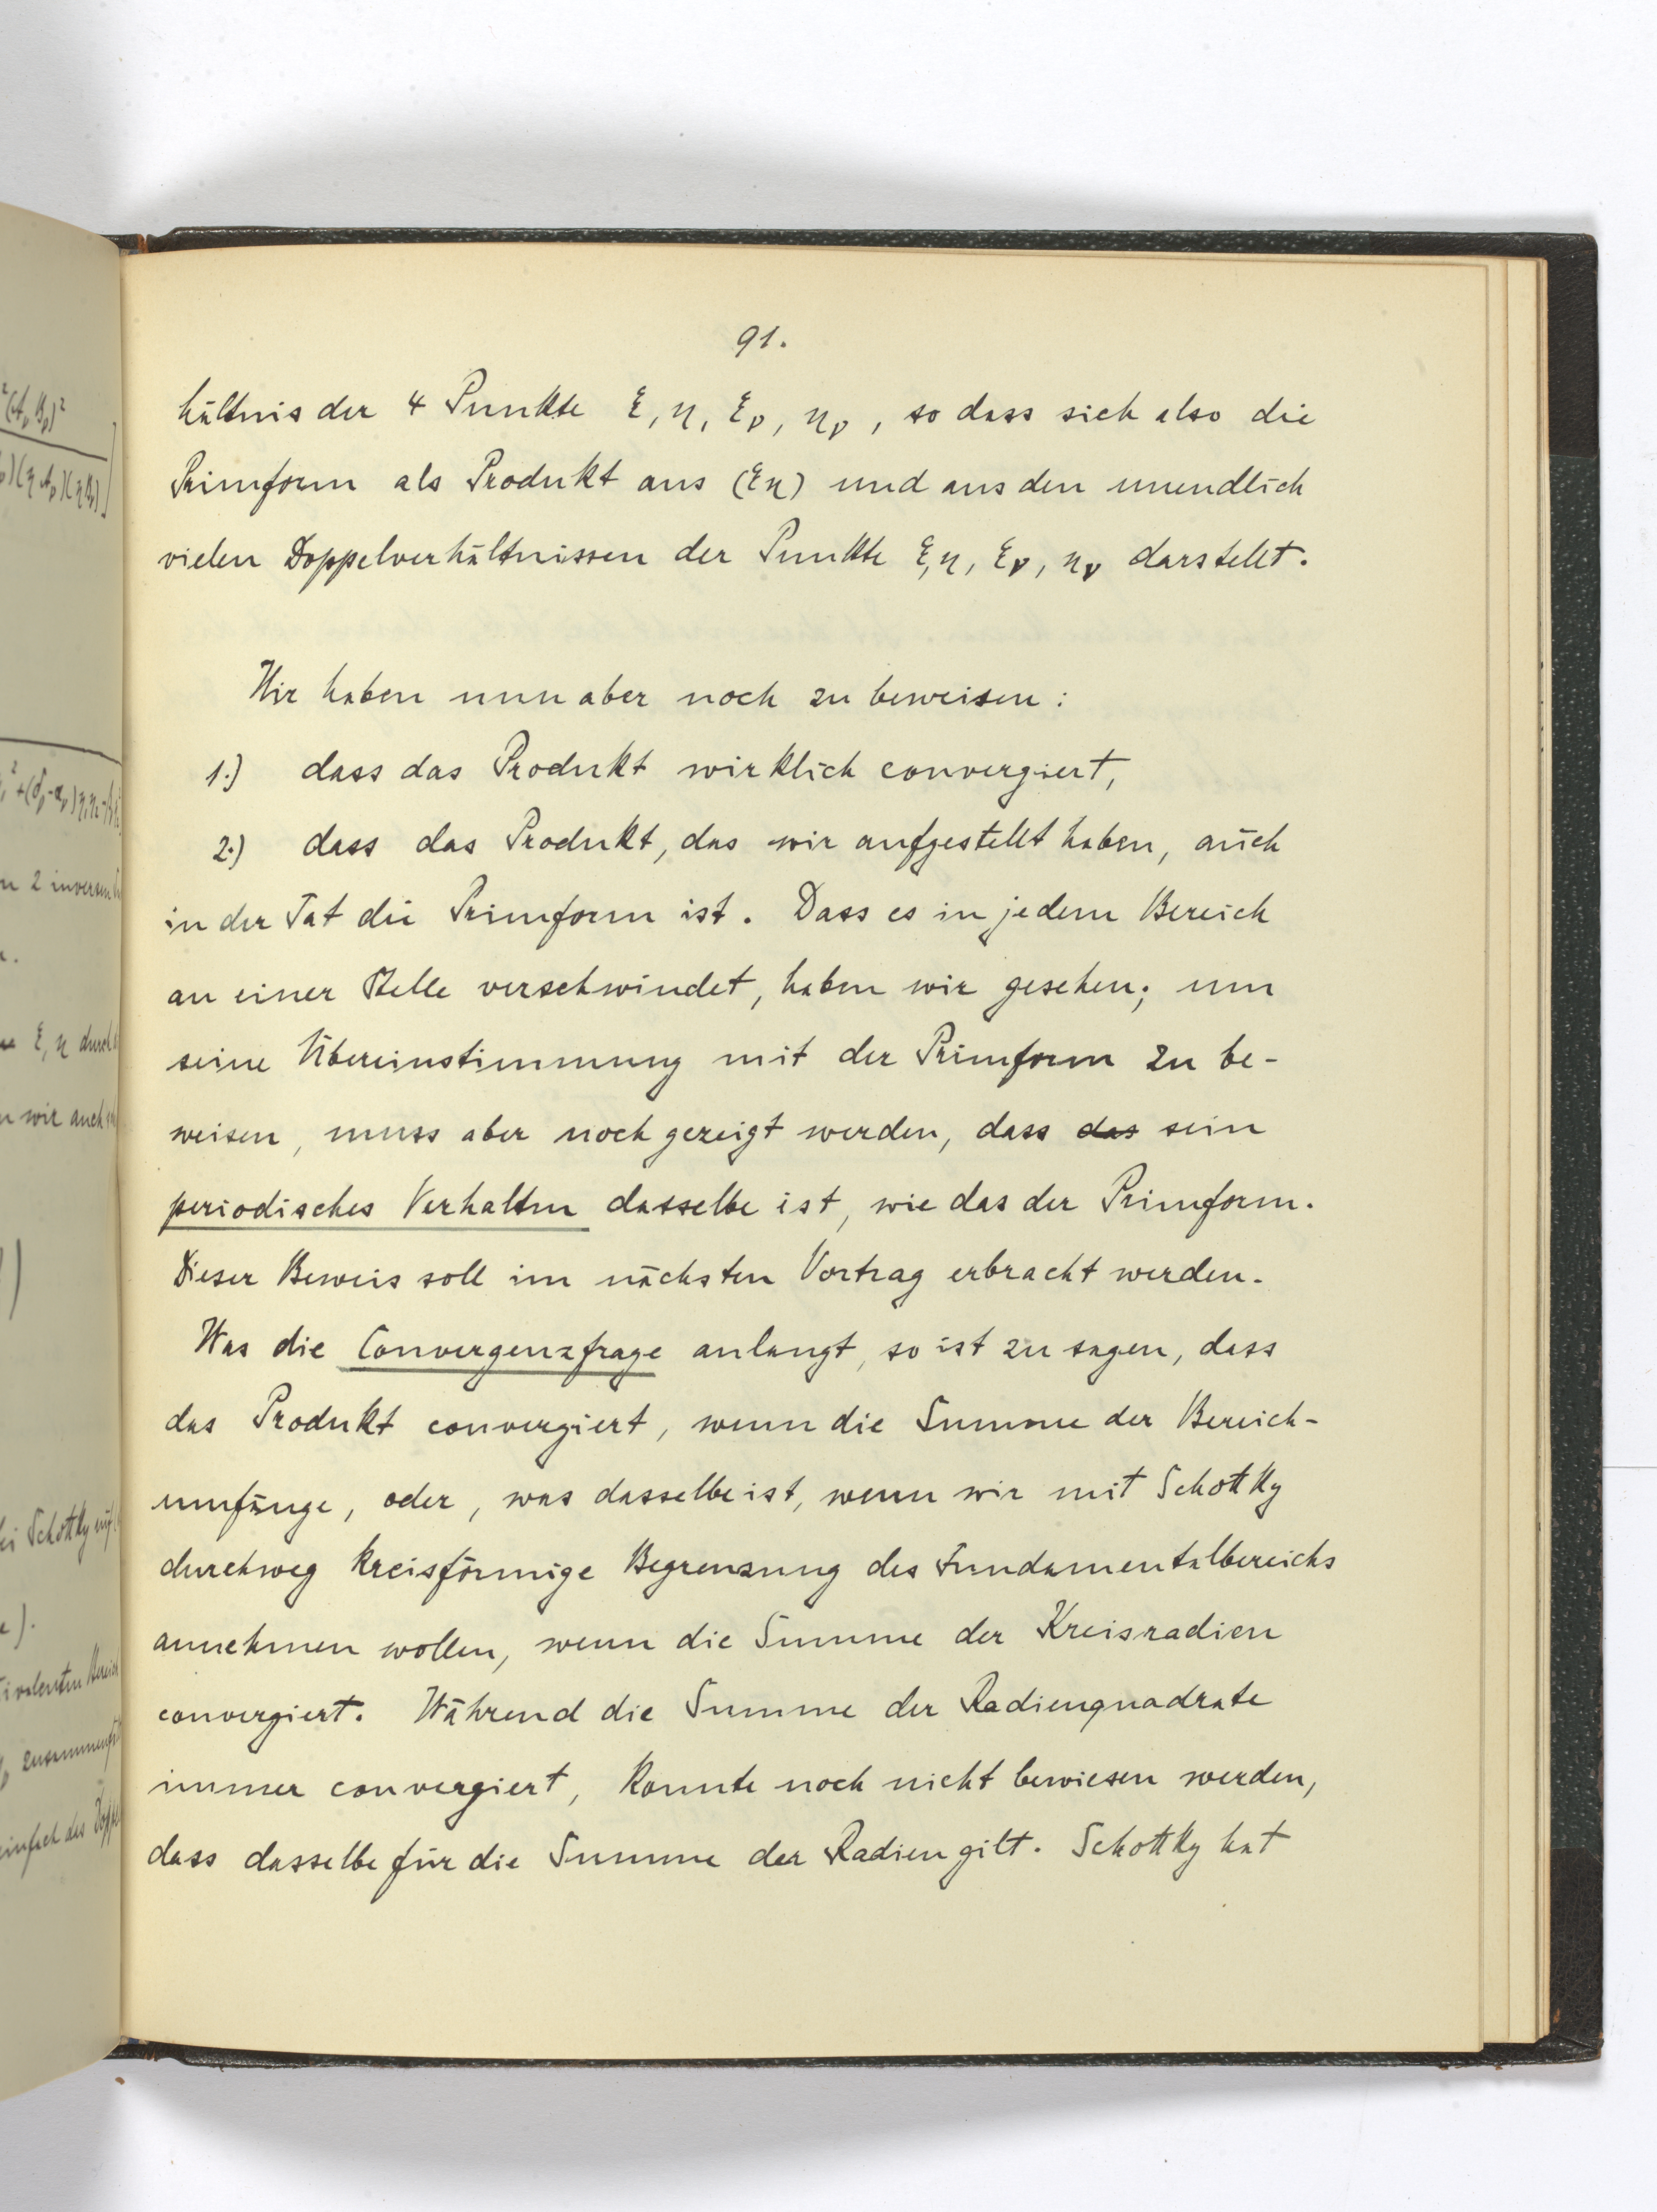 91.
hältnis der 4 Punkte ξ, η, ξν, ην, so dass sich also die
Primform als Produkt aus (ξη) und aus den unendlich
vielen Doppelverhältnissen der Punkte ξ, η, ξν, ην darstellt.
Wir haben nun aber noch zu beweisen:
1.) dass das Produkt wirklich convergiert,
2.) dass das Produkt, das wir aufgestellt haben, auch
in der Tat die Primform ist. Dass es in jedem Bereich
an einer Stelle verschwindet, haben wir gesehen; um
seine Übereinstimmung mit der Primform zu be-
weisen, muss aber noch gezeigt werden, dass das sein
periodisches Verhalten dasselbe ist, wie das der Primform.
Dieser Beweis soll im nächsten Vortrag erbracht werden.
Was die Convergenzfrage anlangt, so ist zu sagen, dass
das Produkt convergiert, wenn die Summe der Bereich-
umfänge, oder, was dasselbe ist, wenn wir mit Schottky
durchweg kreisförmige Begrenzung des Fundamentalbereichs
annehmen wollen, wenn die Summe der Kreisradien
convergiert. Während die Summe der Radienquadrate
immer convergiert, konnte noch nicht bewiesen werden,
dass dasselbe für die Summe der Radien gilt. Schottky hat